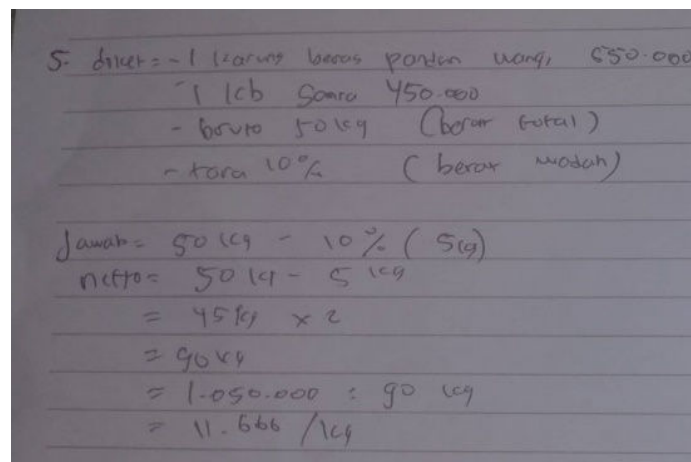 5. diket = - 1 karung beras pandan wangi 650.000
- 1 kb Somra 450.000
- bruto 50 kg (berat total)
- tara 10% (berat wadah)
Jawab = 50 kg - 10% (5kg)
netto = 50 kg - 5 kg
= 45 kg x 2
= 90 kg
= 1.050.000 : 90 kg
= 11.666 / kg